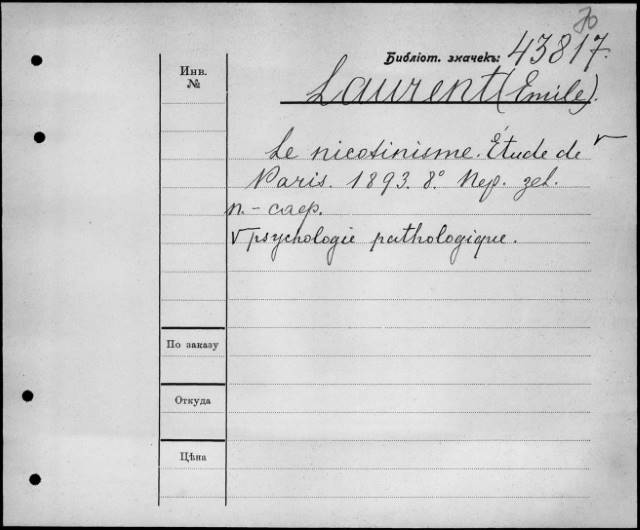 70
Библіот. значекъ: 43817.
Инв. №
Laurent (Emile).
Le nicotinisme. Étude de √
Paris. 1893. 8° Пер. зел.
п. - саф.
√ psychologie pathologique.
По заказу
Откуда
Цѣна